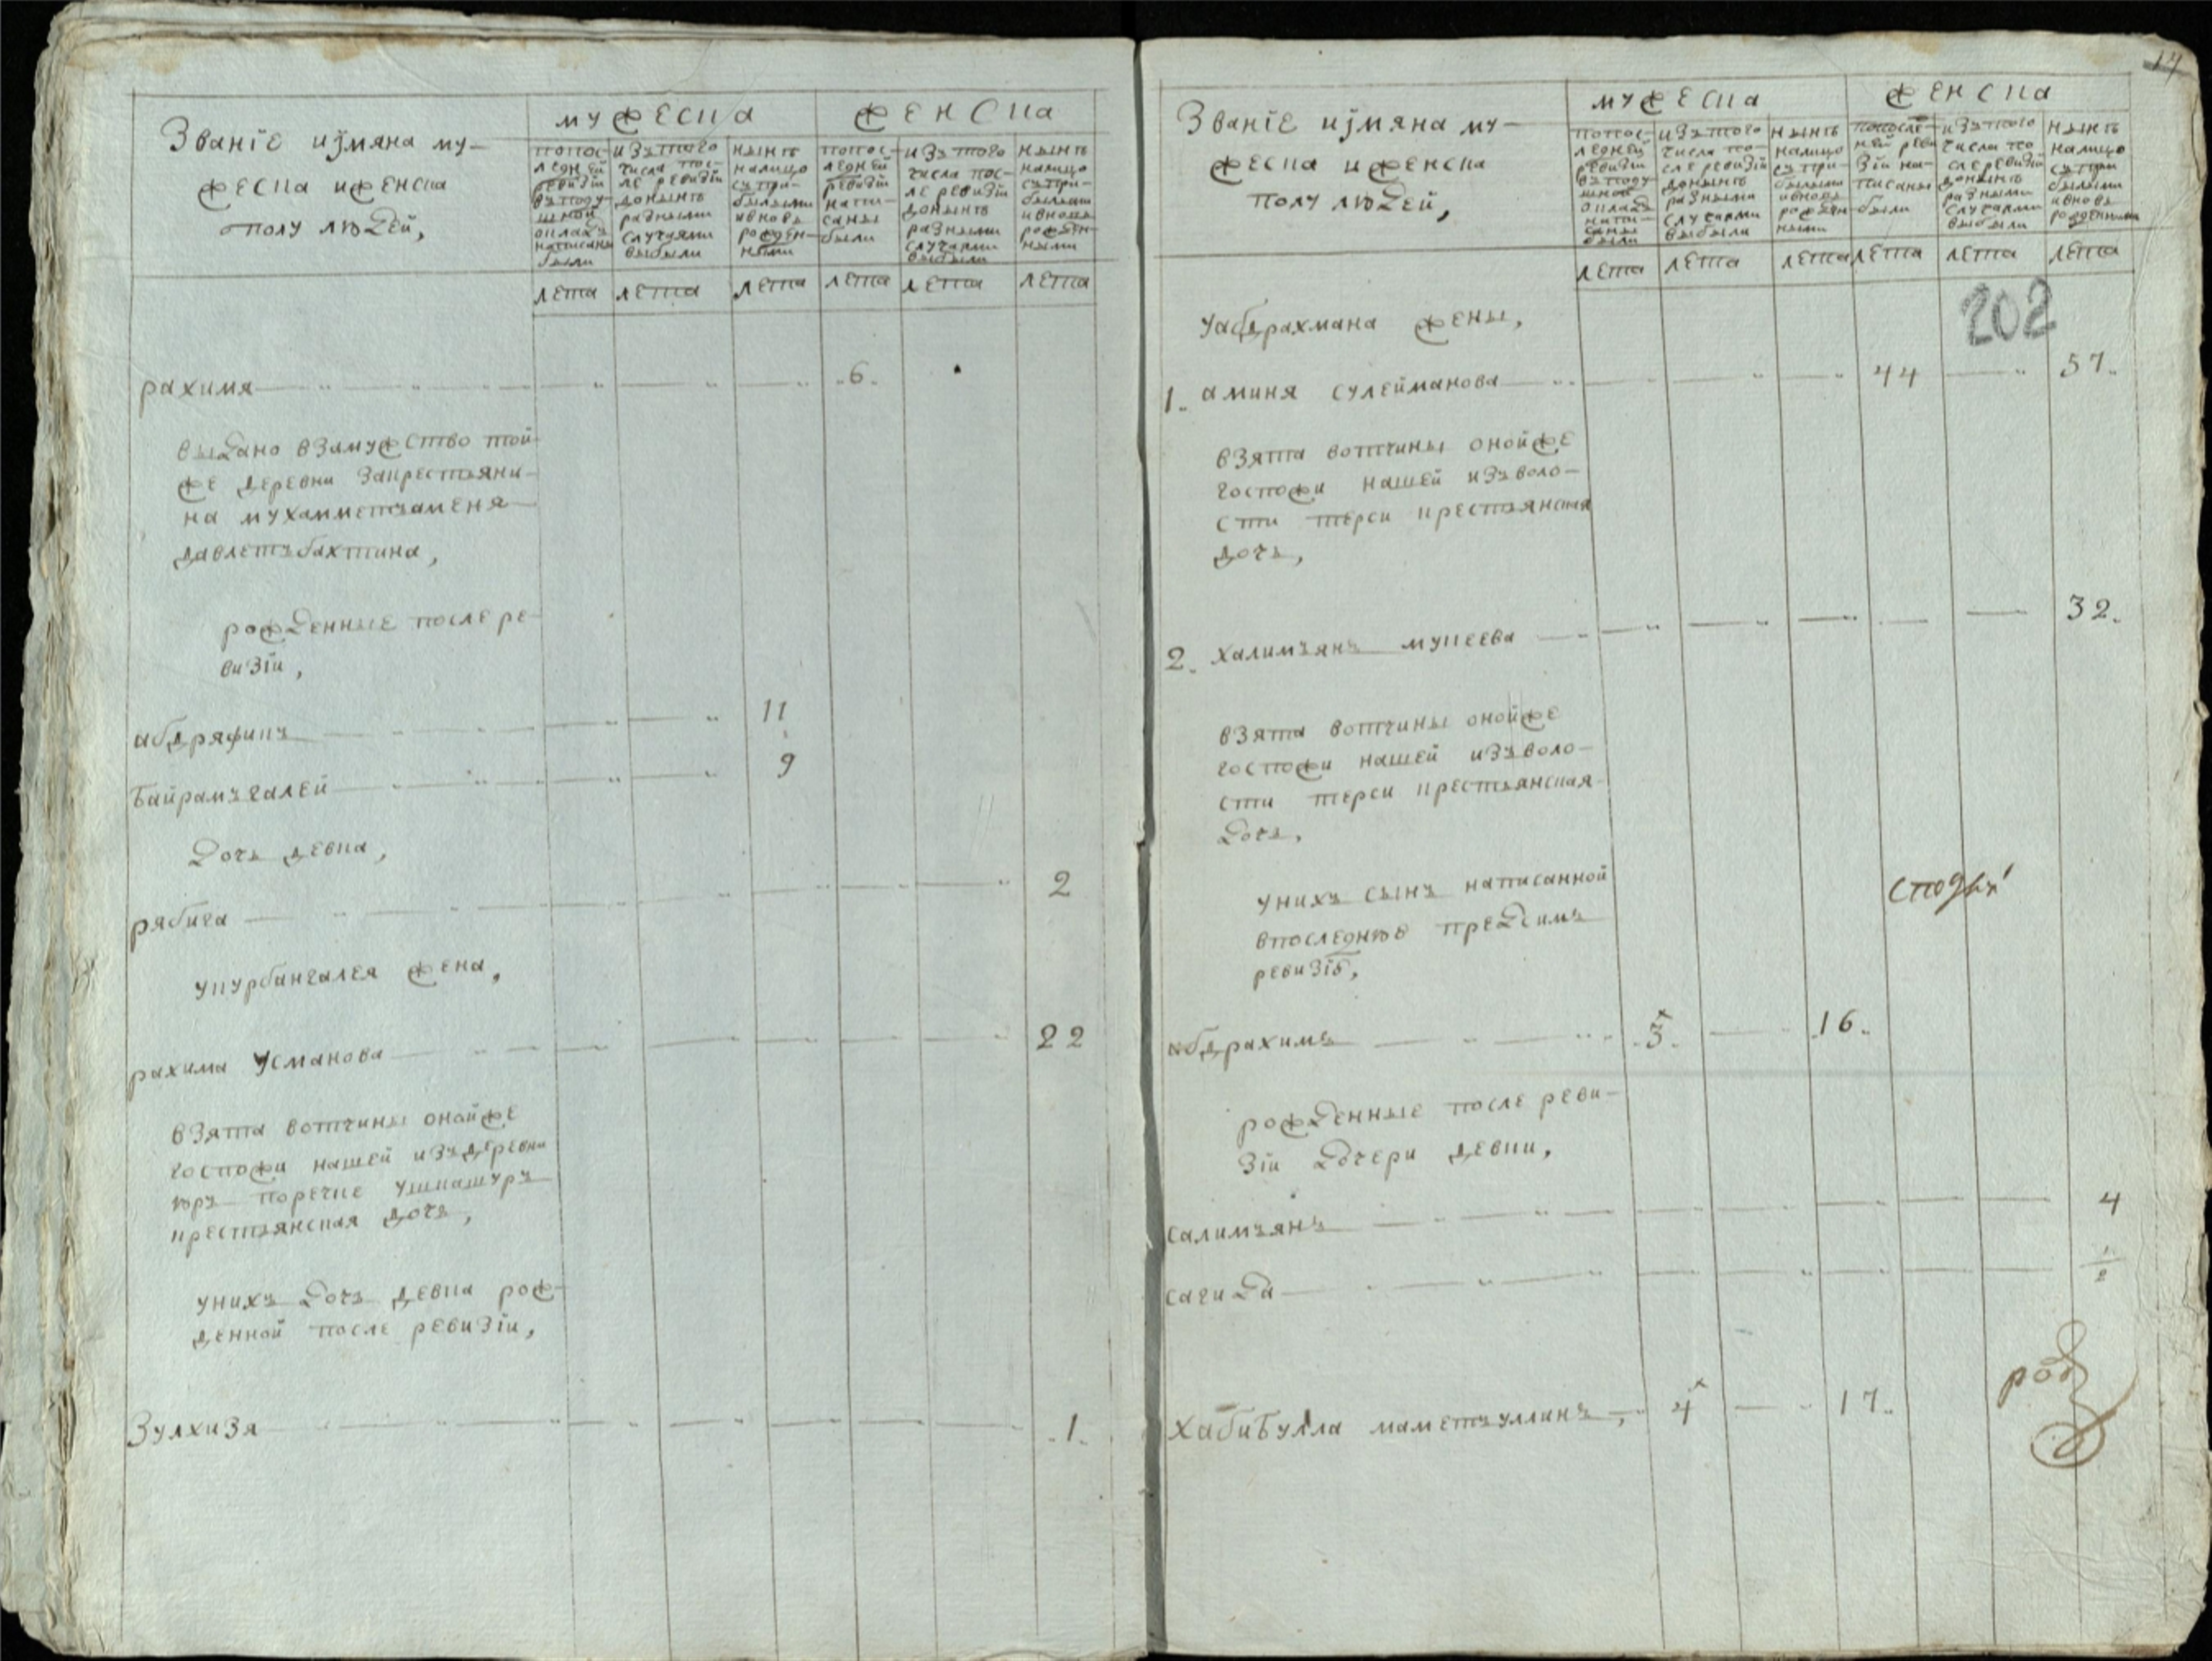 Званіе иімяна му-
жеска иженска
полу людей,
мужеска
женска
попос-
ледней
ревизіи
въподу-
шной
окладъ
написаны
были
изътого
числа пос-
ле ревизіи
донынѣ
разными
случаями
выбыли
нынѣ
налицо
съпри-
былыми
ивновь
рожден-
ными
попос-
ледней
ревизіи
напи-
саны
были
изътого
числа пос-
ле ревизіи
донынѣ
разными
случаями
выбыли
нынѣ
налицо
съпри-
былыми
ивновь
рожден-
ными
лета лета лета лета лета лета
рахимя 6.
выдано взамужство той
же деревни закрестьяни-
на мухамметзаменя
давлетъбахтина,
рожденные после ре-
визіи,
абдряфикъ 11
байрамъгалей 9
дочь девка,
рябига 2
укурбангалея жена,
рахима Усманова 22
взята вотчины онойже
госпожи нашей изъдеревни
юръ поречке ушкашуръ
крестьянская дочь,
унихъ дочь девка рож-
денной после ревизіи,
Зулхизя .1.
14
Званіе иімяна му-
жеска иженска
полу людей,
мужеска
женска
попос-
ледней
ревизіи
въподу-
шной
окладъ
напи-
саны
были
изътого
числа по-
сле ревизіи
донынѣ
разными
случаями
выбыли
нынѣ
налицо
съпри-
былыми
ивновь
рожден-
ными
попосле-
ней реви
зіи на-
писаны
были
изътого
числа по
сле ревизіи
донынѣ
разными
случаями
выбыли
нынѣ
налицо
съпри
былыми
ивновь
рожденными
лета лета лета лета лета лета
202
уабдрахмана жены,
1. аминя сулейманова 44 57.
взята вотчины онойже
госпожи нашей изъволо-
сти терси крестьянская
дочь,
2. халимъянъ мукеева 32.
взята вотчины онойже
госпожи нашей изъволо-
сти терси крестьянская
дочь,
унихъ сынъ написанной
впоследнюю предсимъ
ревизіѣ,
абдрахимъ .3. .16.
рожденные после реви-
зіи дочери девки,
салимъянъ 4
сагида 1/2
хабибулла маметъуллинъ, 4 17.